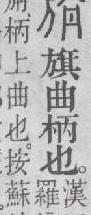 旗曲柄也。漢
羅
柄上曲也。按蘇